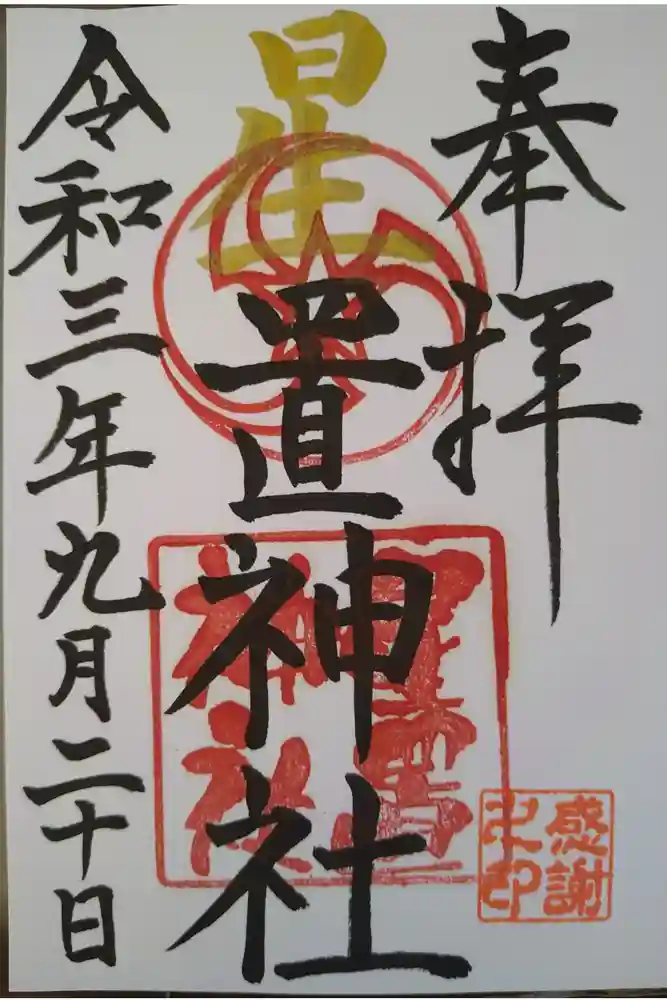 奉拝
星置神社
令和三年九月二十日
星置神社
感謝之印